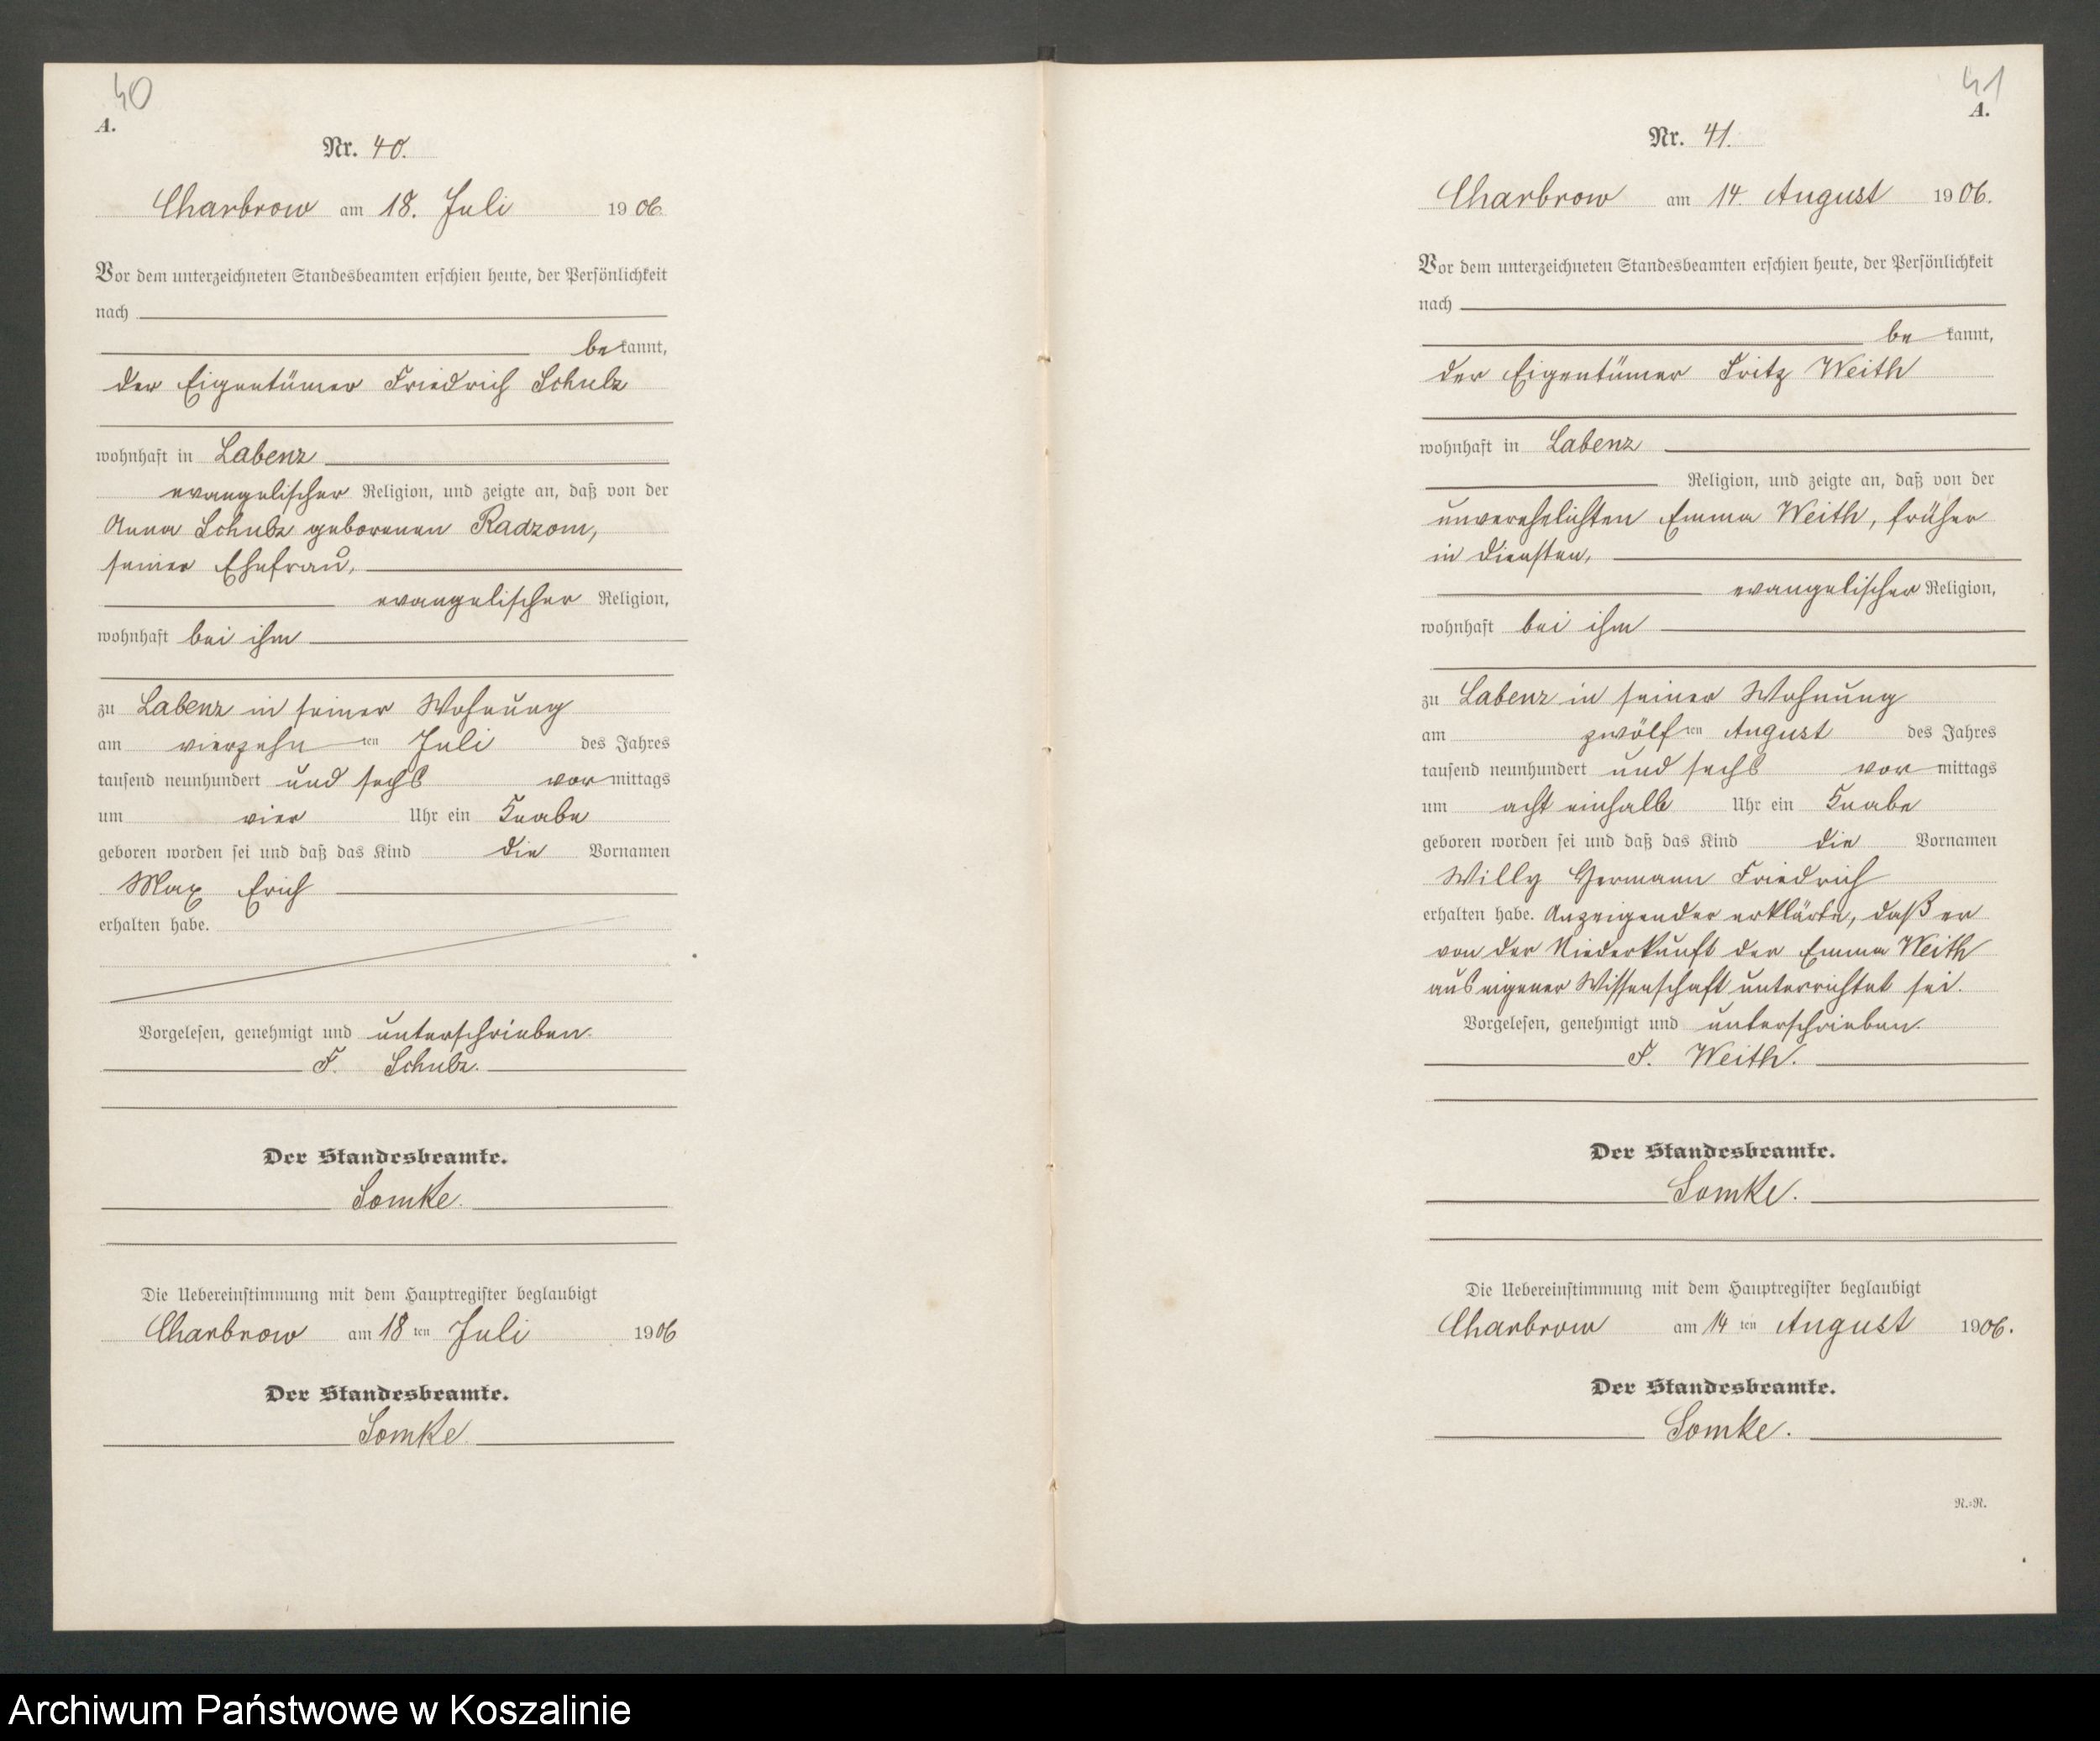 40
A.
Nr. 40.
Charbrow am 18. Juli 1906
Vor dem unterzeichneten Standesbeamten erschien heute, der Persönlichkeit
nach
bekannt,
der Eigentümer Friedrich Schulz
wohnhaft in Labenz
evangelischer Religion, und zeigte an, daß von der
Anna Schulz geborenen Radzom,
seiner Ehefrau,
evangelischer Religion,
wohnhaft bei ihm
zu Labenz in seiner Wohnung
am vierzehnten Juli des Jahres
tausend neunhundert und sechs vormittags
um vier Uhr ein Knabe
geboren worden sei und daß das Kind die Vornamen
Max Erich
erhalten habe.
Vorgelesen, genehmigt und unterschrieben.
F. Schulz.
Der Standesbeamte.
Somke.
Die Uebereinstimmung mit dem Hauptregister beglaubigt
Charbrow am 18ten Juli 1906
Der Standesbeamte.
Somke.
41
A.
Nr. 41.
Charbrow am 14. August 1906.
Vor dem unterzeichneten Standesbeamten erschien heute, der Persönlichkeit
nach
bekannt,
der Eigentümer Fritz Weith
wohnhaft in Labenz
Religion, und zeigte an, daß von der
unverehelichten Emma Weith, früher
in Diensten,
evangelischer Religion,
wohnhaft bei ihm
zu Labenz in seiner Wohnung
am zwölften August des Jahres
tausend neunhundert und sechs vormittags
um acht einhalb Uhr ein Knabe
geboren worden sei und daß das Kind die Vornamen
Willy Hermann Friedrich
erhalten habe. Anzeigender erklärte, daß er
von der Niederkunft der Emma Weith
aus eigener Wissenschaft unterrichtet sei.
Vorgelesen, genehmigt und unterschrieben.
F. Weith.
Der Standesbeamte.
Somke.
Die Uebereinstimmung mit dem Hauptregister beglaubigt
Charbrow am 14ten August 1906.
Der Standesbeamte.
Somke.
R.-R.
Archiwum Państwowe w Koszalinie